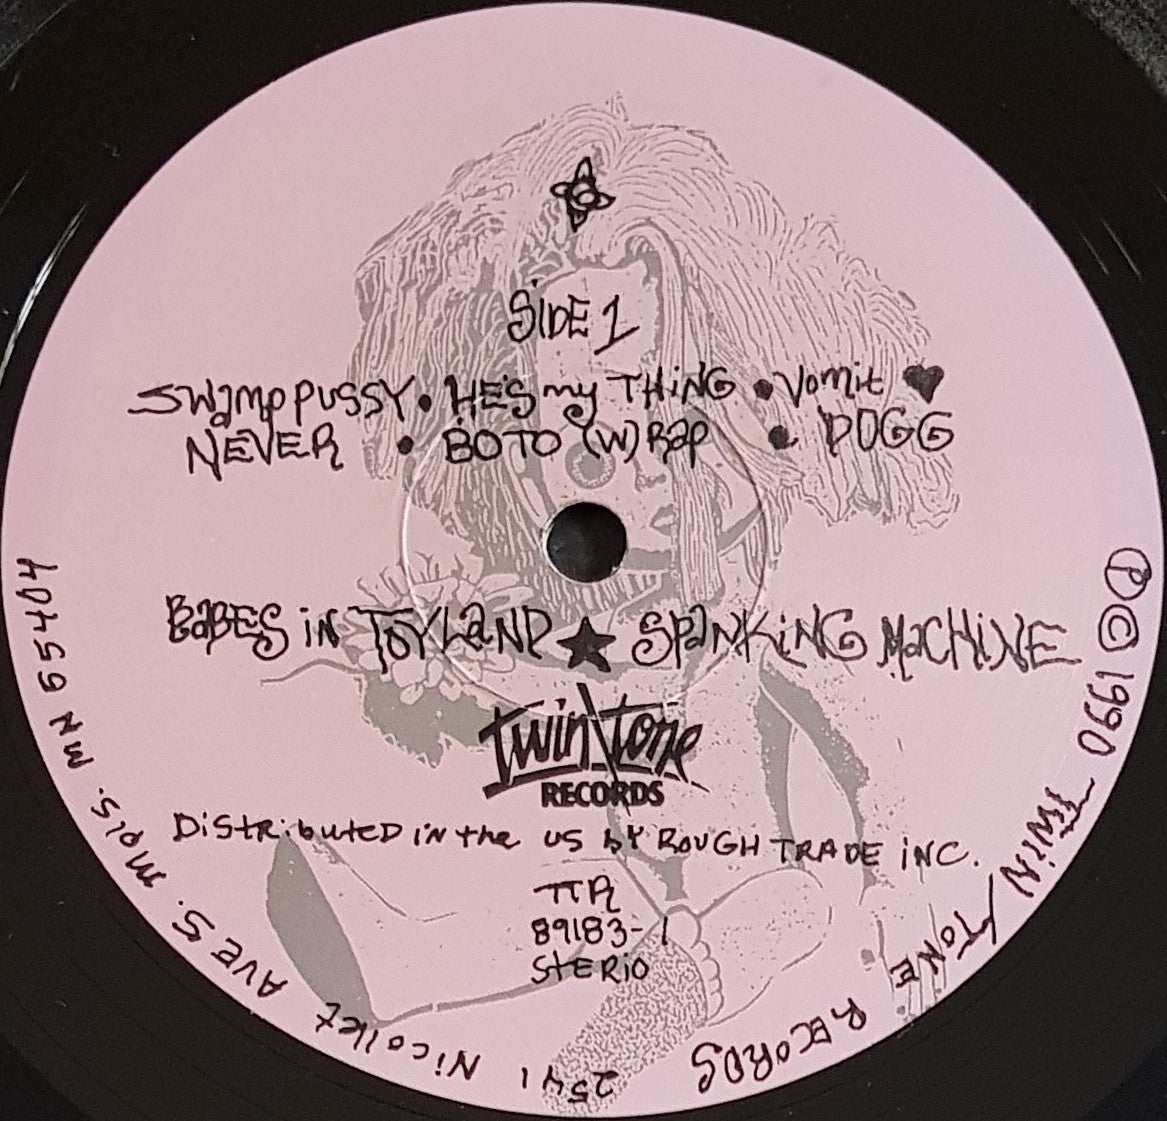 SiDE 1
SWampPUSSY • HE'S my THiNG • Vomit ♥
NEVER • BOTO (W)Rap • DOGG
BaBES iN TOYLaND ★ SPaNKiNG MaCHiNE
Twin\Tone
RECORDS
DiStRibuteD iN the US bY ROUGH TRADE iNC.
TTR
89183-1
StERiO
ⓅⒸ1990 TWiN/TONE RECORDS 2541 Nicollet AVE S. Mpls. MN 55404